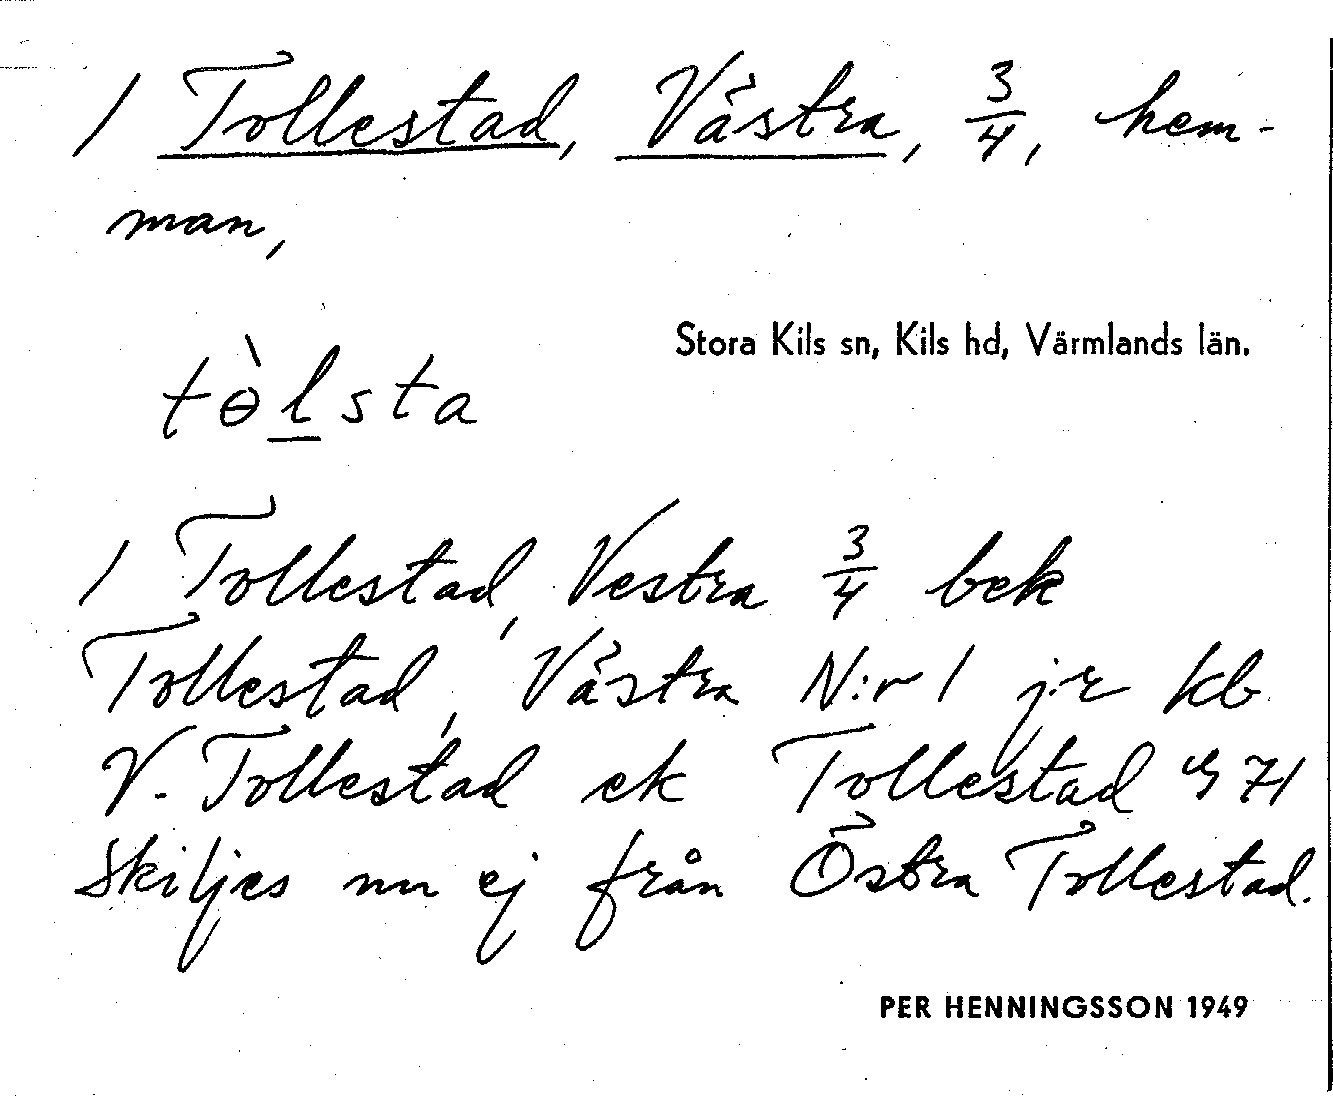 1 Tollestad, Västra, 3/4, hem-
man,
Stora Kils sn, Kils hd, Värmlands län.
tɵ̀lsta
1 Tollestad, Vestra 3/4 bek
Tollestad, Västra N:r 1 j:r kb
V. Tollestad ek Tollestad G 71
Skiljes nu ej från Östra Tollestad.
PER HENNINGSSON 1949